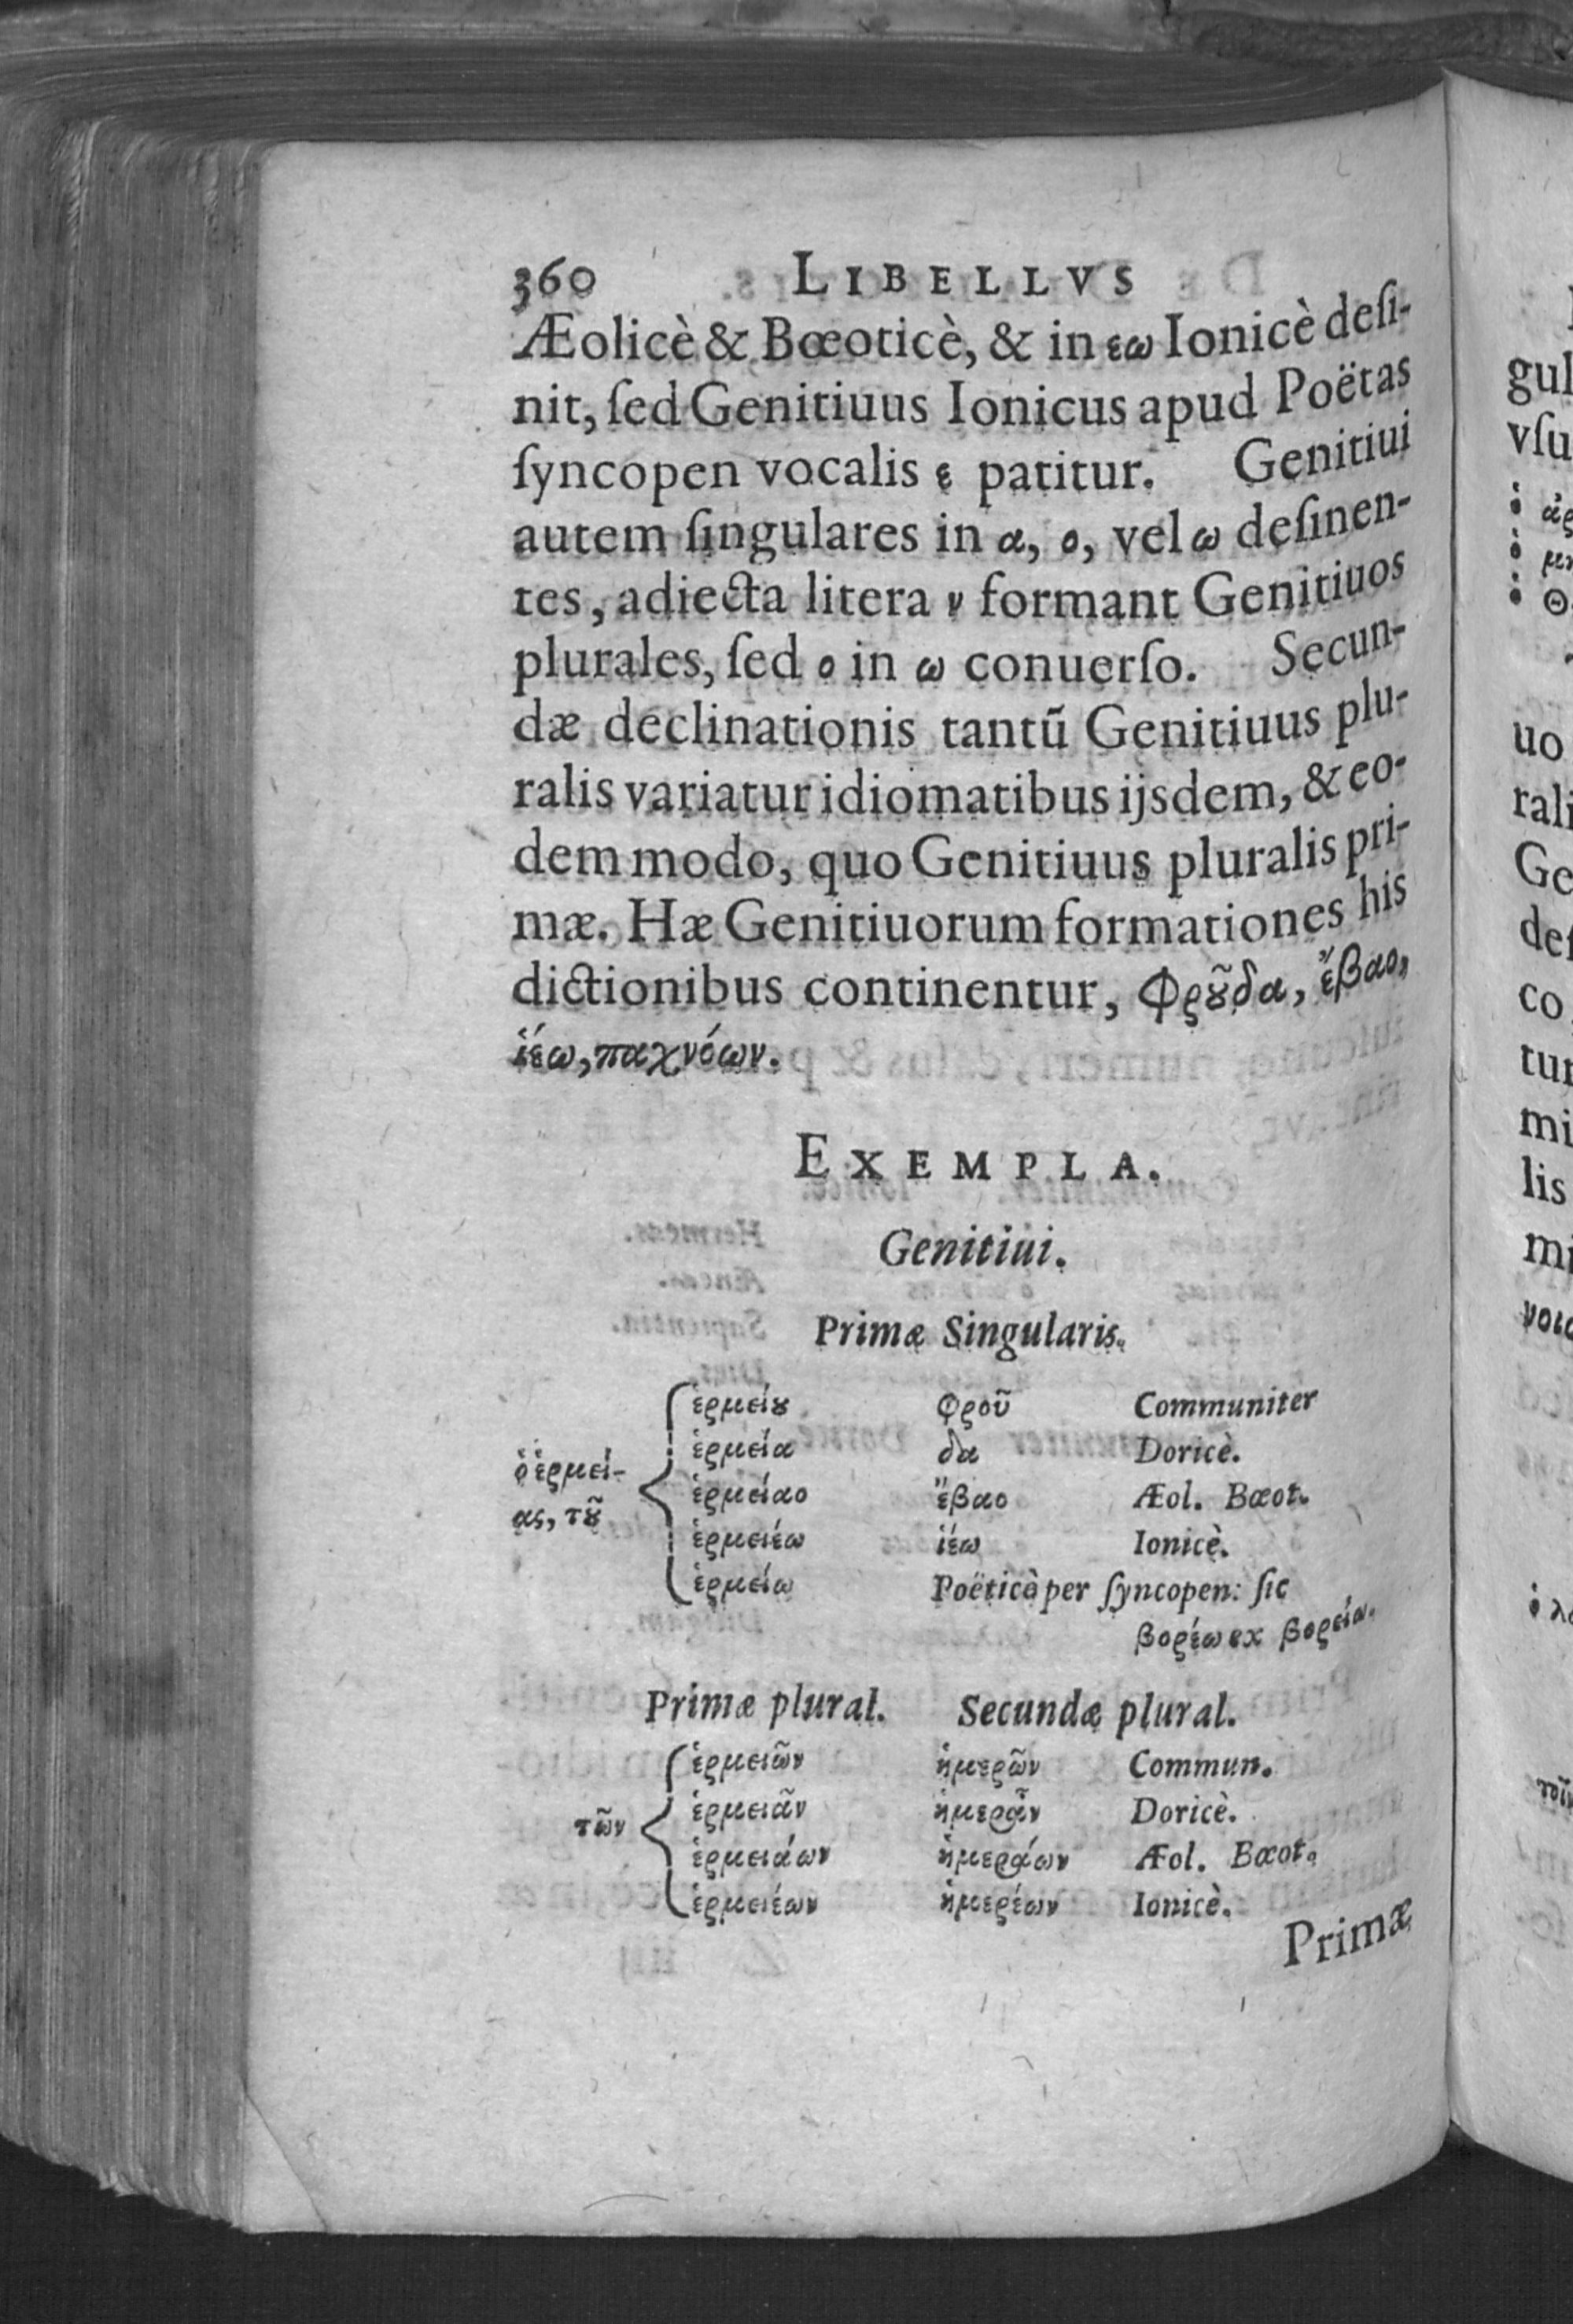 360 LIBELLVS
Æolicè & Bœoticè, & in εω Ionicè deſi-
nit, ſed Genitiuus Ionicus apud Poëtas
ſyncopen vocalis ε patitur. Genitiui
autem ſingulares in α, ο, vel ω deſinen-
tes, adiecta litera ν formant Genitiuos
plurales, ſed ο in ω conuerſo. Secun-
dæ declinationis tantū Genitiuus plu-
ralis variatur idiomatibus ijsdem, & eo-
dem modo, quo Genitiuus pluralis pri-
mæ. Hæ Genitiuorum formationes his
dictionibus continentur, Φρȣ͂δα, ἔβαο,
ἰέω, παχνόων.
EXEMPLA.
Genitiui.
Primæ Singularis.
ὁ ἑρμεί-
ας, τȣ͂
ἑρμείȣ φροῦ Communiter
ἑρμεία δα Doricè.
ἑρμείαο ἔβαο Æol. Bœot.
ἑρμειέω ἰέω Ionicè.
ἑρμείω Poëticè per ſyncopen: ſic
βορέω ex βορεία.
Primæ plural. Secundæ plural.
τῶν
ἑρμειῶν ἡμερῶν Commun.
ἑρμειᾶν ἡμερᾶν Doricè.
ἑρμειάων ἡμεράων Æol. Bœot.
ἑρμειέων ἡμερέων Ionicè.
Primæ